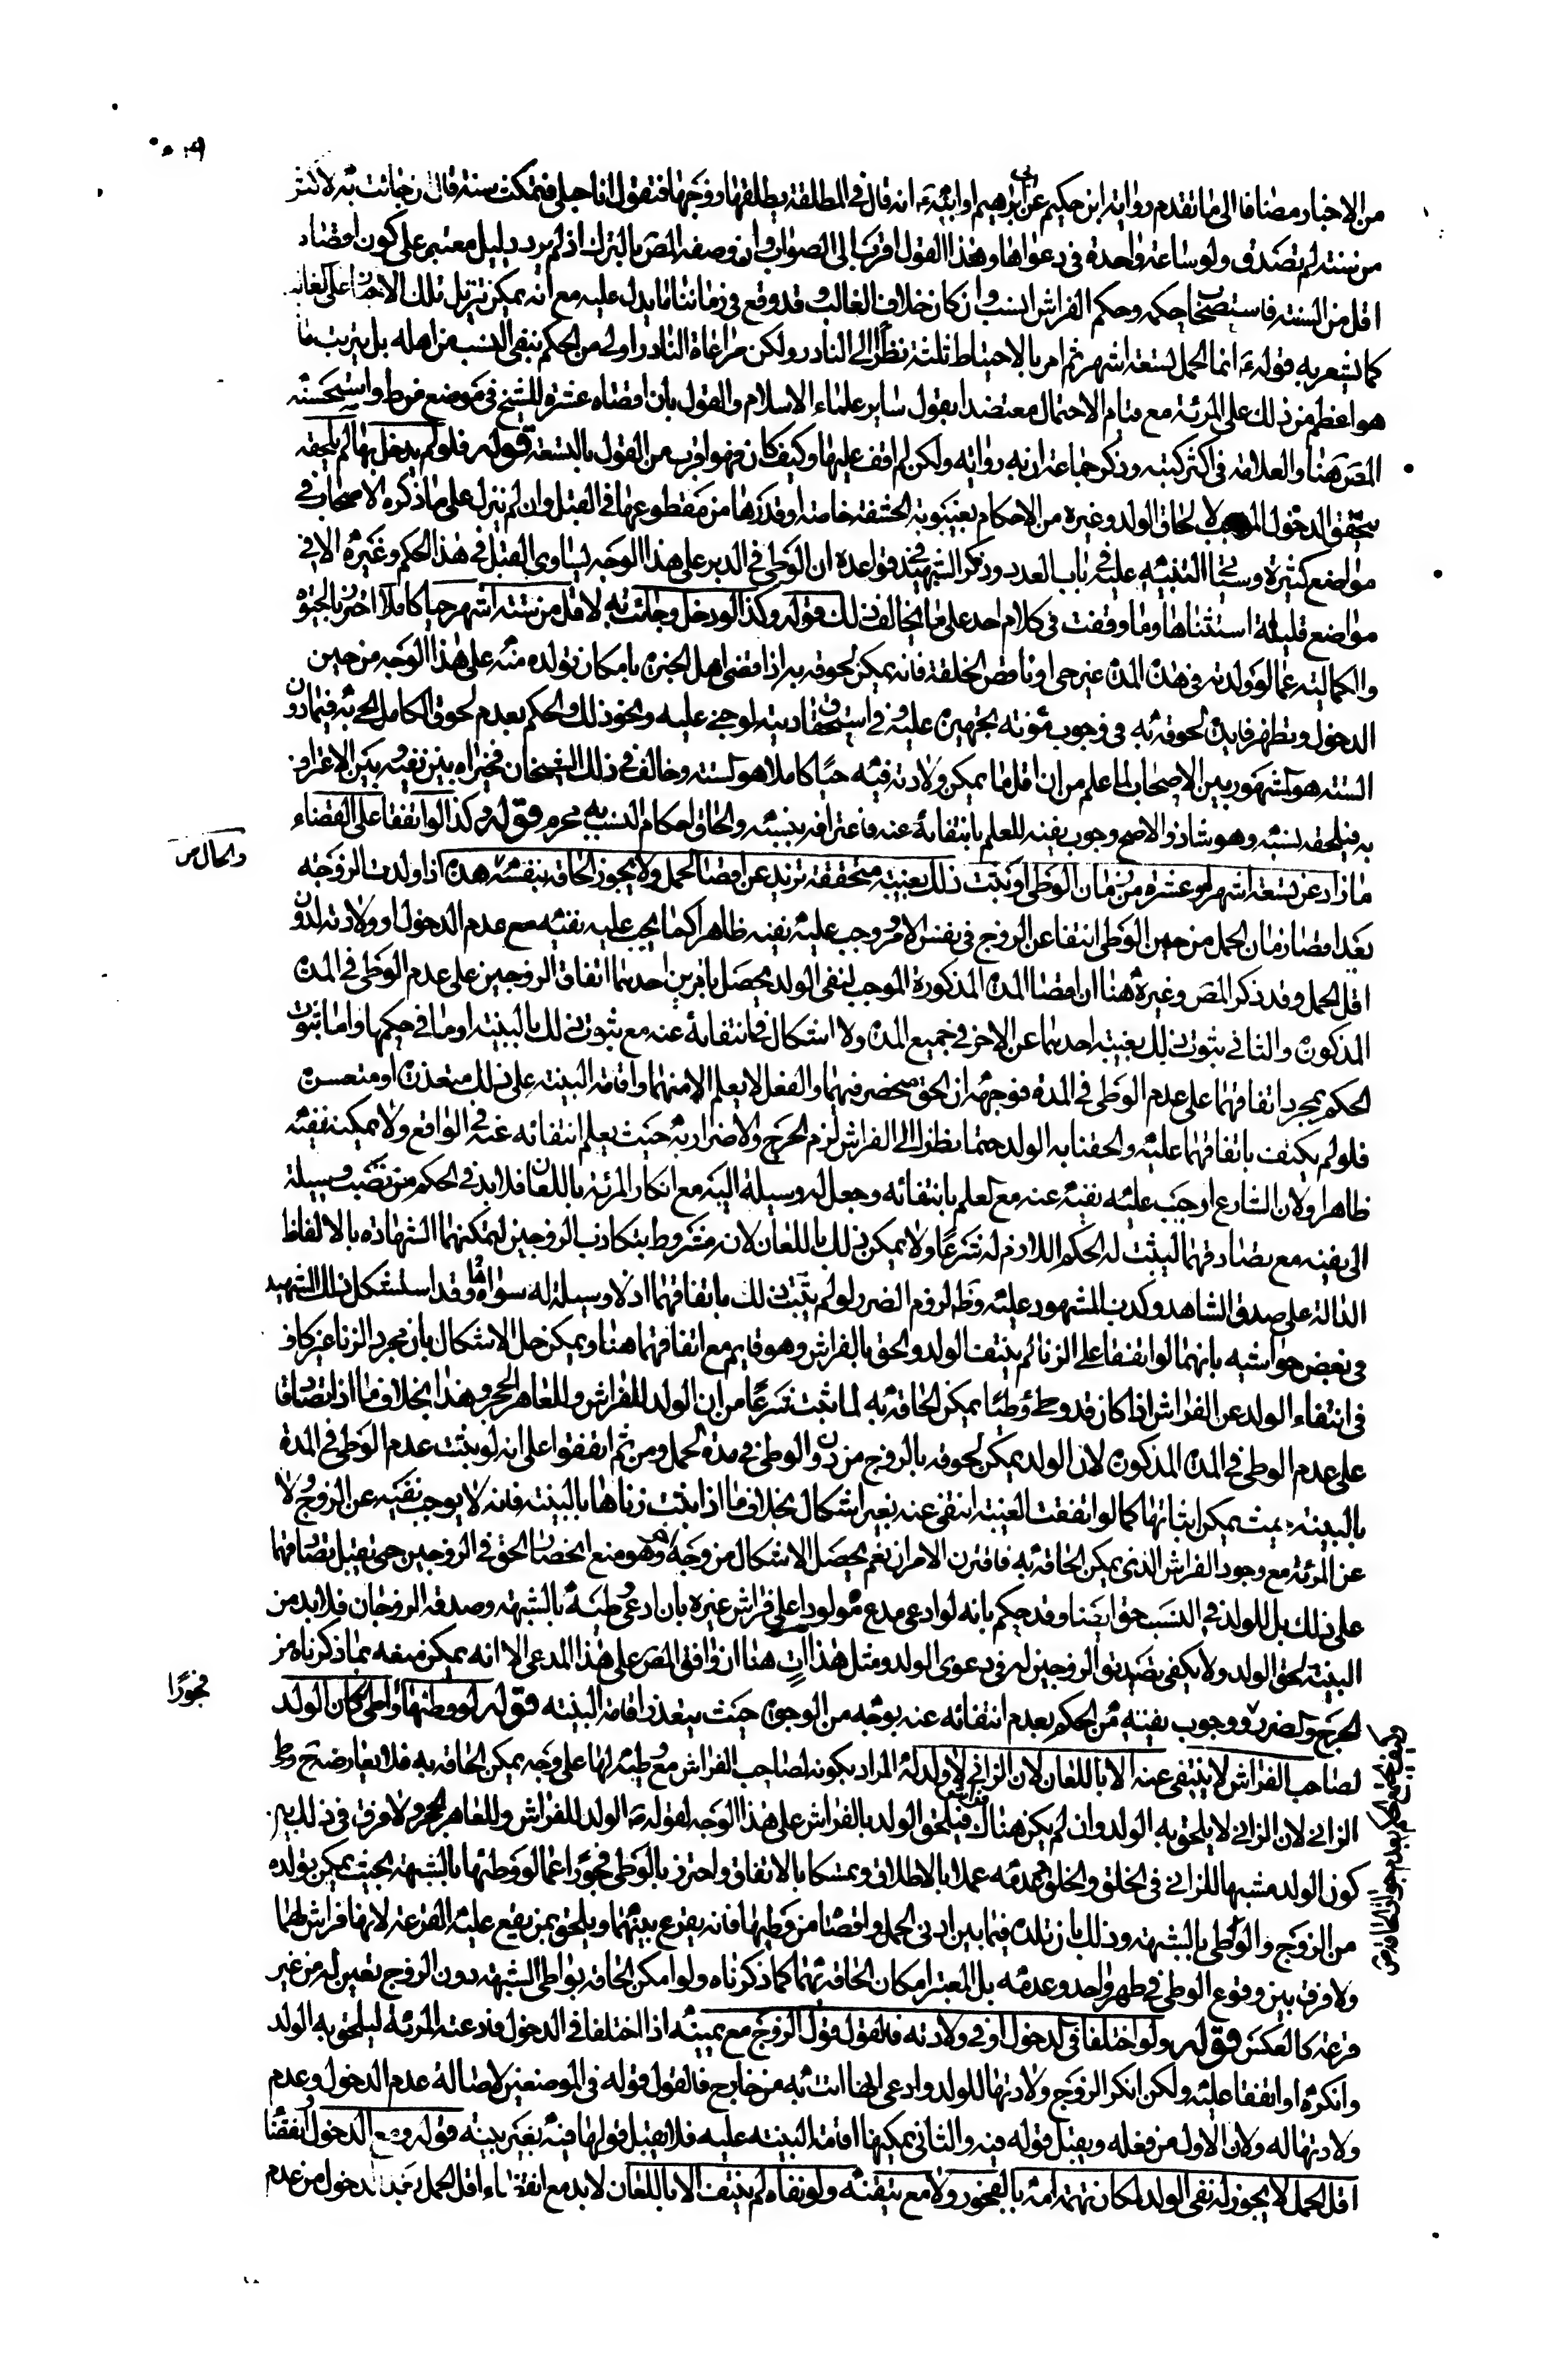 من الاخبار مضافا الى ما تقدم رواية ابن حكيم عن ابى ابرهيم او ابنه ع انه قال فى المطلقة يطلقها زوجها فتقول انا حبلى فتمكث سنة قال ان جائت به لاكثر
من سنة لم تصدق ولو ساعة واحدة فى دعواها وهذا القول اقرب الى الصواب وان وصفه المص بالترك اذ لم يرد دليل معتبر على كون اقصاه
اقل من السنة فاستصحاب حكمه وحكم الفراش انسب وان كان خلاف الغالب وقد وقع فى زماننا ما يدل عليه مع انه يمكن تنزيل تلك الاخبار على الغالب
كما يشعر به قوله ع انما الحمل تسعة اشهر ثم امر بالاحتياط ثلثة نظرا الى النادر ولكن مراعاة النادر اولى من الحكم بنفى النسب عن اهله بل يترتب ما
هو اعظم من ذلك على المرئة مع قيام الاحتمال معتضدا بقول ساير علماء الاسلام والقول بان اقصاه عشرة للشيخ فى موضع من ط واستحسنه
المص هنا والعلامة فى اكثر كتبه وذكر جماعة ان به رواية ولكن لم اقف عليها وكيف كان فهو اقرب من القول بالتسعة قوله فلو لم يدخل بها لم يلحقه
يتحقق الدخول الموجب لالحاق الولد وغيره من الاحكام بغيبوبة الحشفة خاصة او قدرها من مقطوعها فى القبل وان لم ينزل على ما ذكره الاصحاب فى
مواضع كثيرة وسيجئ التنبيه عليه فى باب العدد وذكر الشهيد فى قواعده ان الوطى فى الدبر على هذا الوجه يساوى القبل فى هذا الحكم وغيره الا فى
مواضع قليلة استثناها وما وقفت فى كلام احد على ما يخالف ذلك قوله وكذا لو دخل وجائت به لاقل من ستة اشهر حيا كاملا احترز بالحيوة
والكمالية عما لو ولدته فى هذه المدة غير حى او ناقص الخلقة فانه يمكن لحوقه به اذا قضى اهل الخبرة بامكان تولده منه على هذا الوجه من حين
الدخول وتظهر فايدة لحوقه به فى وجوب مؤنة تجهيزه عليه وفى استحقاق ديته لو جنى عليه ونحو ذلك والحكم بعدم لحوق الكامل الحى به فيما دون
الستة هو المشهور بين الاصحاب لما علم من ان اقل ما يمكن ولادته فيه حيا كاملا هو الستة وخالف فى ذلك الشيخان فخيراه بين نفيه وبين الاعتراف
به فيلحقه نسبه وهو شاذ والاصح وجوب نفيه للعلم بانتفائه عنه فاعترافه بنسبه والحاق احكام النسب به محرم قوله وكذا لو اتفقا على انقضاء
ما زاد عن تسعة اشهر او عشرة من زمان الوطى او ثبت ذلك بغيبة متحققة تزيد عن اقصى الحمل ولا يجوز الحاقه بنفسه والحال هذه اذا ولدت الزوجة
بعد اقصى زمان الحمل من حين الوطى انتفا عن الزوج فى نفس الامر ووجب عليه نفيه ظاهرا كما يجب عليه نفيه مع عدم الدخول او ولادته لدون
اقل الحمل وقد ذكر المص وغيره هنا ان انقضا المدة المذكورة الموجب لنفى الولد يحصل بامرين احدهما اتفاق الزوجين على عدم الوطى فى المدة
المذكورة والثانى ثبوت ذلك بغيبة احدهما عن الاخر فى جميع المدة ولا اشكال فى انتفائه عنه مع ثبوت ذلك بالبينة او ما فى حكمها واما ثبوت
الحكم بمجرد اتفاقهما على عدم الوطى فى المدة فوجهه ان الحق منحصر فيهما والفعل لا يعلم الا منهما واقامة البينة على ذلك متعذرة او متعسرة
فلو لم يكتف باتفاقهما عليه والحقنا به الولد حتما نظرا الى الفراش لزم الحرج والاضرار به حيث يعلم انتفائه عنه فى الواقع ولا يمكنه نفيه
ظاهرا ولان الشارع اوجب عليه نفيه عنه مع العلم بانتفائه وجعل له وسيلة اليه مع انكار المرئة باللعان فلا بد فى الحكم من نصب وسيلة
الى نفيه مع تصادقهما ليثبت له الحكم اللازم له شرعا ولا يمكن ذلك باللعان لانه مشروط بتكاذب الزوجين ليمكنهما الشهادة بالالفاظ
الدالة على صدق الشاهد وكذب المشهود عليه وظهر لزوم الضرر لو لم يثبت ذلك باتفاقهما اذ لا وسيلة له سواه وقد استشكل ذلك الشهيد
فى بعض حواشيه بانهما لو اتفقا على الزنا لم ينتف الولد والحق بالفراش وهو قايم مع اتفاقهما هنا ويمكن حل الاشكال بان مجرد الزنا غير كاف
فى انتفاء الولد عن الفراش اذا كان قد وطئ وطئا يمكن الحاقه به لما ثبت شرعا من ان الولد للفراش وللعاهر الحجر وهذا بخلاف ما اذا تصادقا
على عدم الوطى فى المدة المذكورة لان الولد يمكن لحوقه بالزوج من دون الوطى فى مدة الحمل ومن ثم اتفقوا على انه لو ثبت عدم الوطى فى المدة
بالبينة بحيث يمكن اثباتها كما لو اتفقت الغيبة انتفى عنه بغير اشكال بخلاف ما اذا ثبت زناها بالبينة فانه لا يوجب نفيه عن الزوج ولا
عن المرئة مع وجود الفراش الذى يمكن الحاقه به فافترق الامران نعم يحصل الاشكال من وجه اخر وهو منع انحصار الحق فى الزوجين حتى يقبل تصادقهما
على ذلك بل للولد فى النسب حق ايضا وقد حكم بانه لو ادعى مدع مولودا على فراش غيره بان ادعى وطيه بالشبهة وصدقه الزوجان فلا بد من
البينة لحق الولد ولا يكفى تصديق الزوجين له فى دعوى الولد ومثل هذا ات هنا ان وافق المص على هذا المدعى الا انه يمكن منعه بما ذكرناه من
الحرج والضرر ووجوب نفيه من الحكم بعدم انتفائه عنه بوجه من الوجوه حيث يتعذر اقامة البينة قوله لو وطئها واطى فجورا كان الولد
لصاحب الفراش لا ينتفى عنه الا باللعان لان الزانى لا ولد له المراد بكونه لصاحب الفراش مع وطئه لها على وجه يمكن الحاقه به فلا يعارضه ح وطى
الزانى لان الزانى لا يلحق به الولد وان لم يكن هناك فراش فيلحق الولد بالفراش على هذا الوجه لقوله ع الولد للفراش وللعاهر الحجر ولا فرق فى ذلك بين
كون الولد مشبها للزانى فى الخلق والخلق وعدمه عملا بالاطلاق وتمسكا بالاتفاق واحترز بالوطى فجورا عما لو وطئها بالشبهة بحيث يمكن تولده
من الزوج والواطى بالشبهة وذلك بان تلده فيما بين ادنى الحمل واقصاه من وطيهما فانه يقرع بينهما ويلحق بمن يقع عليه القرعة لانها فراش لهما
ولا فرق بين وقوع الوطى فى طهر واحد وعدمه بل المعتبر امكان الحاقه بهما كما ذكرناه ولو امكن الحاقه بواطى الشبهة دون الزوج تعين له من غير
قرعة كالعكس قوله ولو اختلفا فى الدخول او فى ولادته فالقول قول الزوج مع يمينه اذا اختلفا فى الدخول فادعته المرئة ليلحق به الولد
وانكره او اتفقا عليه ولكن انكر الزوج ولادتها للولد وادعى انها اتت به من خارج فالقول قوله فى الموضعين لاصالة عدم الدخول وعدم
ولادتها له ولان الاول من فعله ويقبل قوله فيه والثانى يمكنها اقامة البينة عليه فلا يقبل قولها فيه بغير بينة قوله ومع الدخول وانقضاء
اقل الحمل لا يجوز له نفى الولد لمكان تهمة امه بالفجور ولا مع تيقنه ولو نفاه لم ينتف الا باللعان لا بد مع انقضاء اقل الحمل بعد الدخول من عدم
والحال ص
فجورا